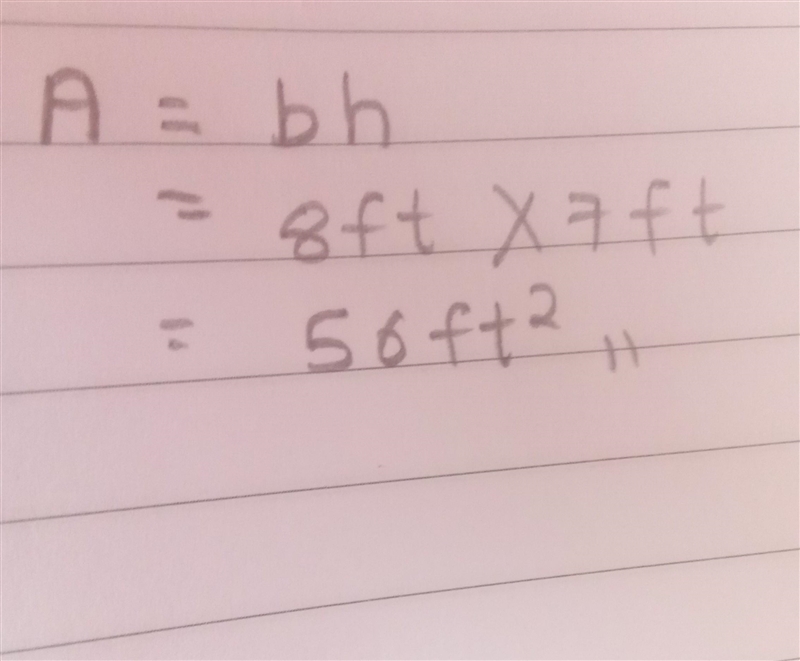 A = bh
= 8ft x 7ft
= 56ft² "